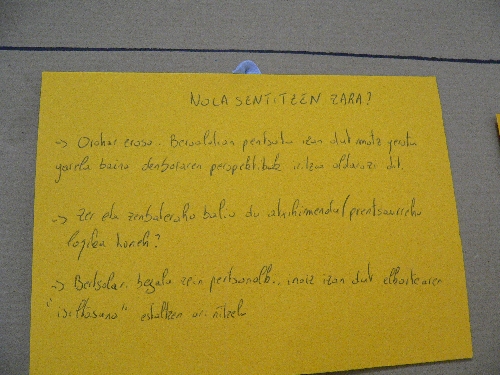 NOLA SENTITZEN ZARA?
→ Orokor eroso. Berealdian pentsatu izan dut motz geratu
garela baina denboraren perspektibak iritzia aldarazi dit.
→ Zer eta zenbaterako balio du atxikimendu/prentsaurreko
logika honek?
→ Bertsolari bezala zein pertsonalki, inoiz izan dut elkartearen
"isiltasuna" estaltzen ari nitzela